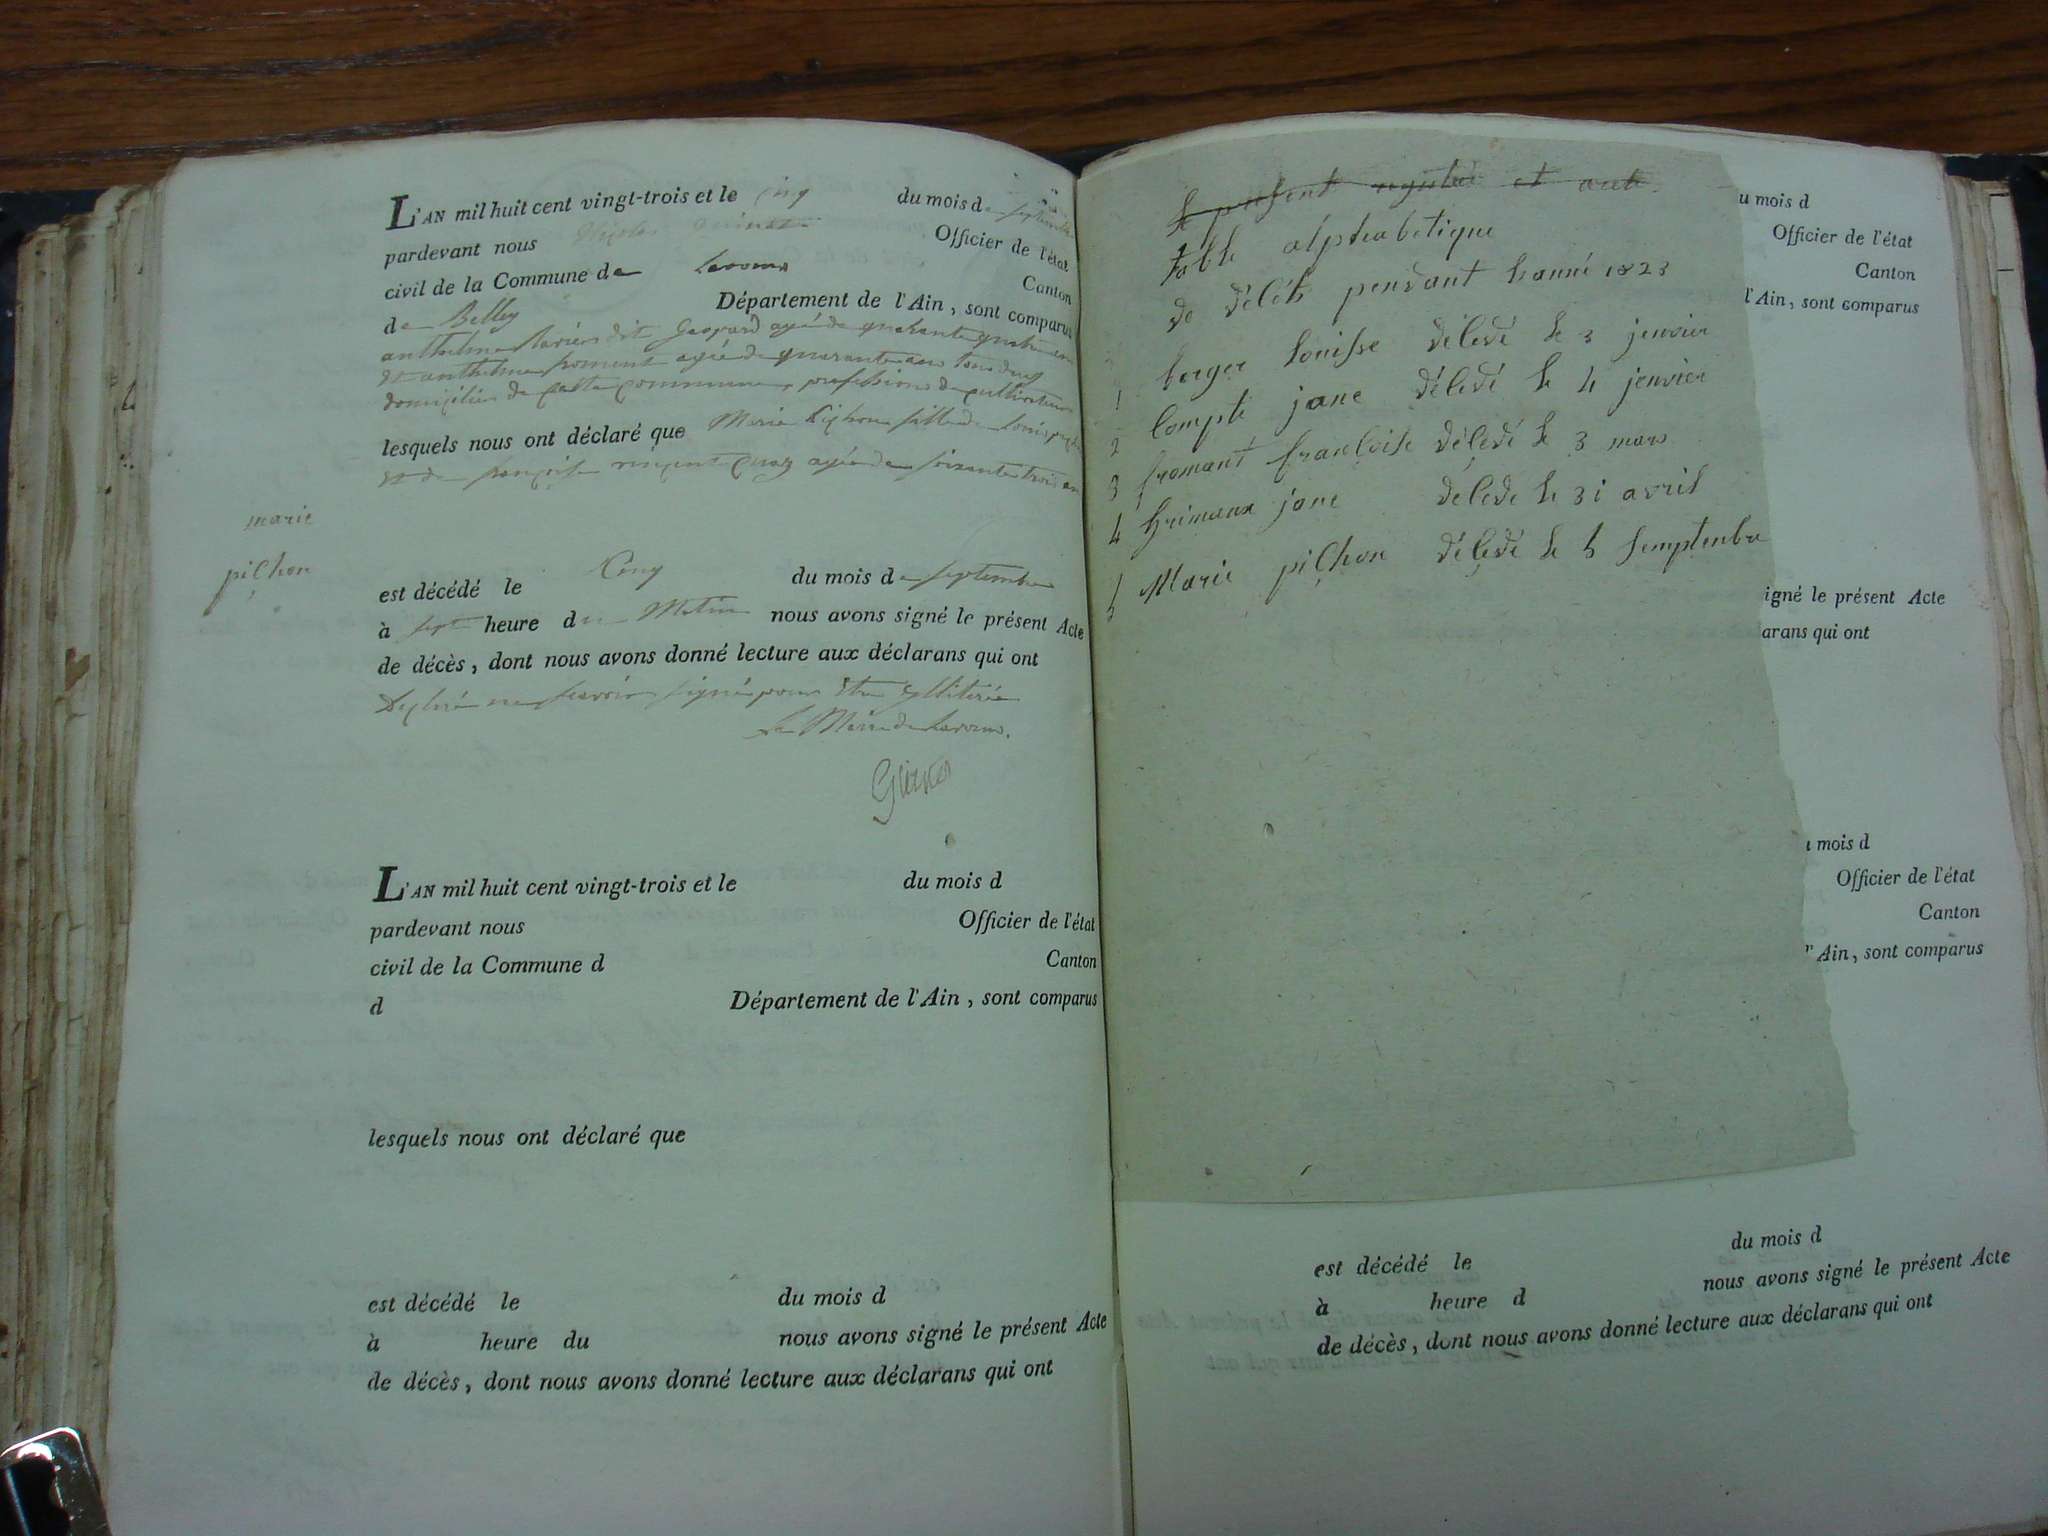 L'AN mil huit cent vingt-trois et le cinq du mois de septembre
pardevant nous Officier de l'état
civil de la Commune de Lavours Canton
de Belley Département de l'Ain, sont comparus
anthelme dit Gaspard agé de quarante quatre ans
et anthelme froment agé de quarante ans tous deux
domiciliés de cette commune, profession de cultivateurs
lesquels nous ont déclaré que Marie pichon fille de Louis
et de françoise agée de soixante trois ans
marie
pichon
est décédé le Cinq du mois de septembre
à sept heure du Matin nous avons signé le présent Acte
de décès, dont nous avons donné lecture aux déclarans qui ont
déclaré ne scavoir signé pour être
Le Maire de Lavours.
L'AN mil huit cent vingt-trois et le du mois d
pardevant nous Officier de l'état
civil de la Commune d Canton
d Département de l'Ain, sont comparus
lesquels nous ont déclaré que
est décédé le du mois d
à heure du nous avons signé le présent Acte
de décès, dont nous avons donné lecture aux déclarans qui ont
le present registre et
table alphabetique
de déléts pendant lanné 1823
1 berger louisse délédé le 3 jenvier
2 Compte jane délédé le 4 jenvier
3 fromant francloise délédé le 3 mars
4 jane délede le 31 avril
5 Marie piçhon déçedé le 5 semptenbre
u mois d
Officier de l'état
Canton
l'Ain, sont comparus
igné le présent Acte
arans qui ont
mois d
Officier de l'état
Canton
Ain, sont comparus
est décédé le du mois d
à heure d nous avons signé le présent Acte
de décès, dont nous avons donné lecture aux déclarans qui ont